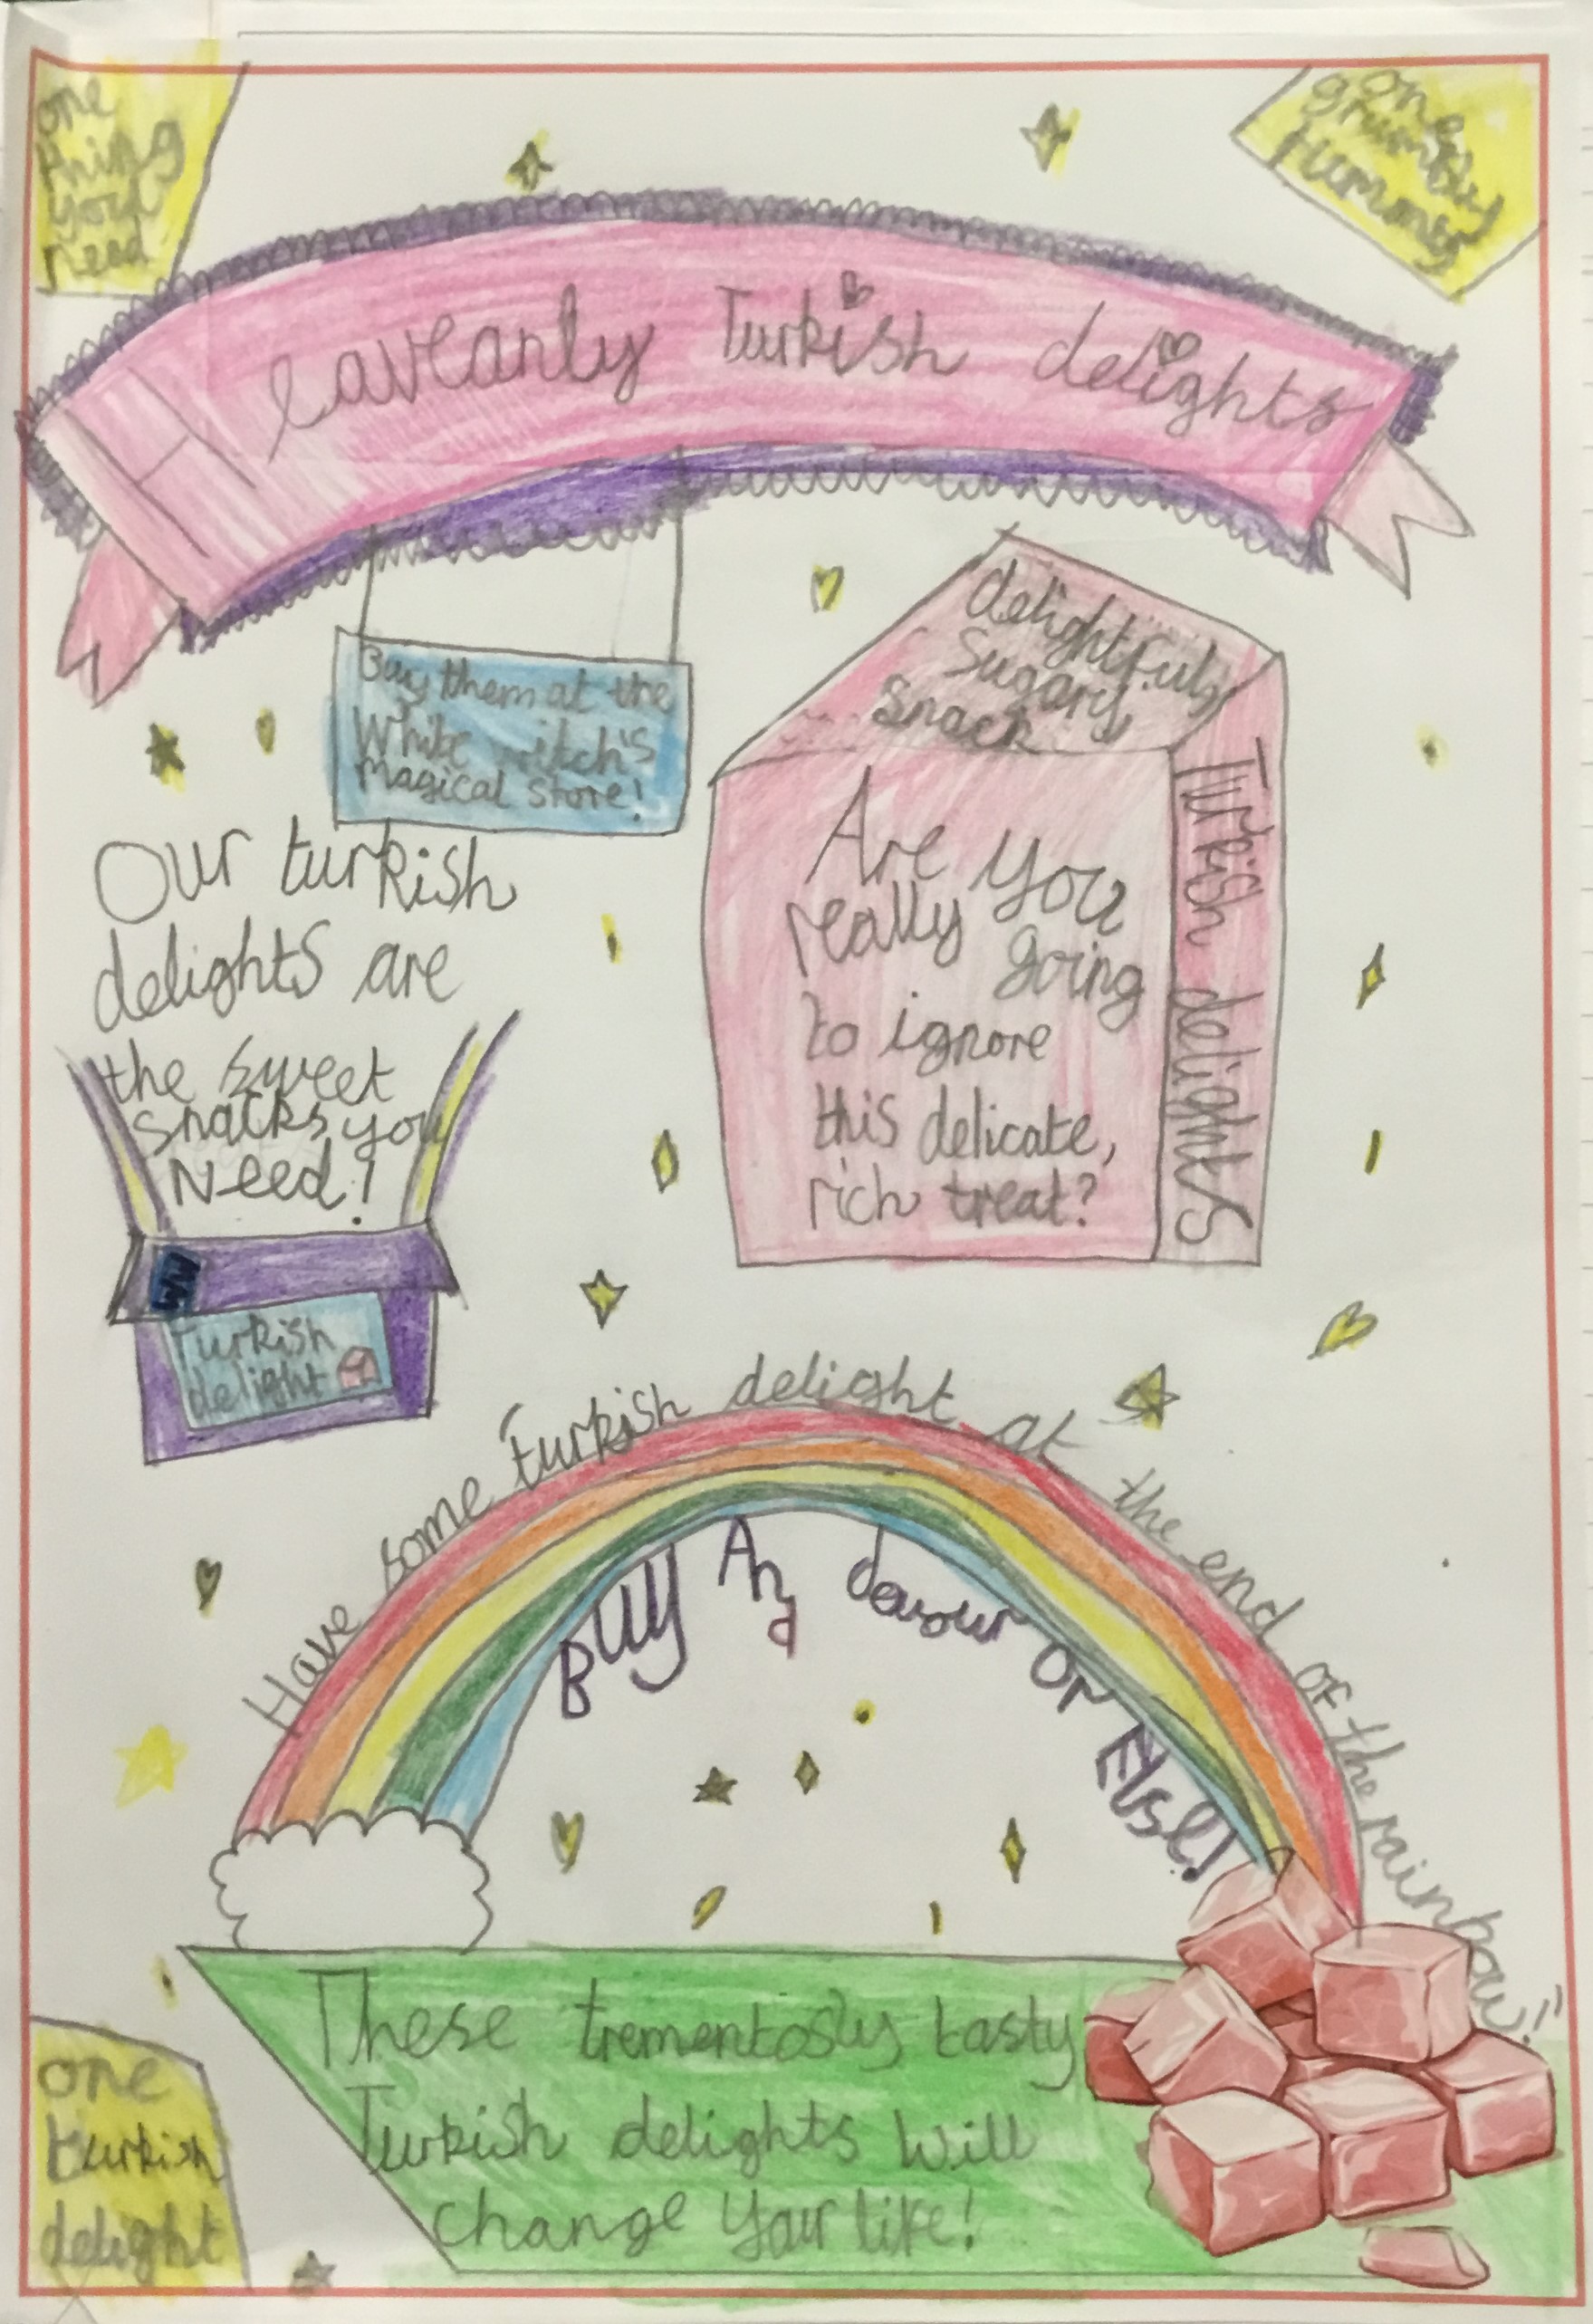 one
thing
you
need
one
grumbly
tummy
Heaveanly Turkish delights
Buy them at the
White witch's
Magical store!
delightfuly
Sugary
Snack
Turkish delights
Are you
really going
to ignore
this delicate,
rich treat?
Our turkish
delights are
the sweet
snacks you
Need!
WW
Turkish
delight
Have some turkish delight at the end of the rainbow!!
Buy And devour or Else!
These trementosly tasty
Turkish delights will
change your life!
one
turkish
delight